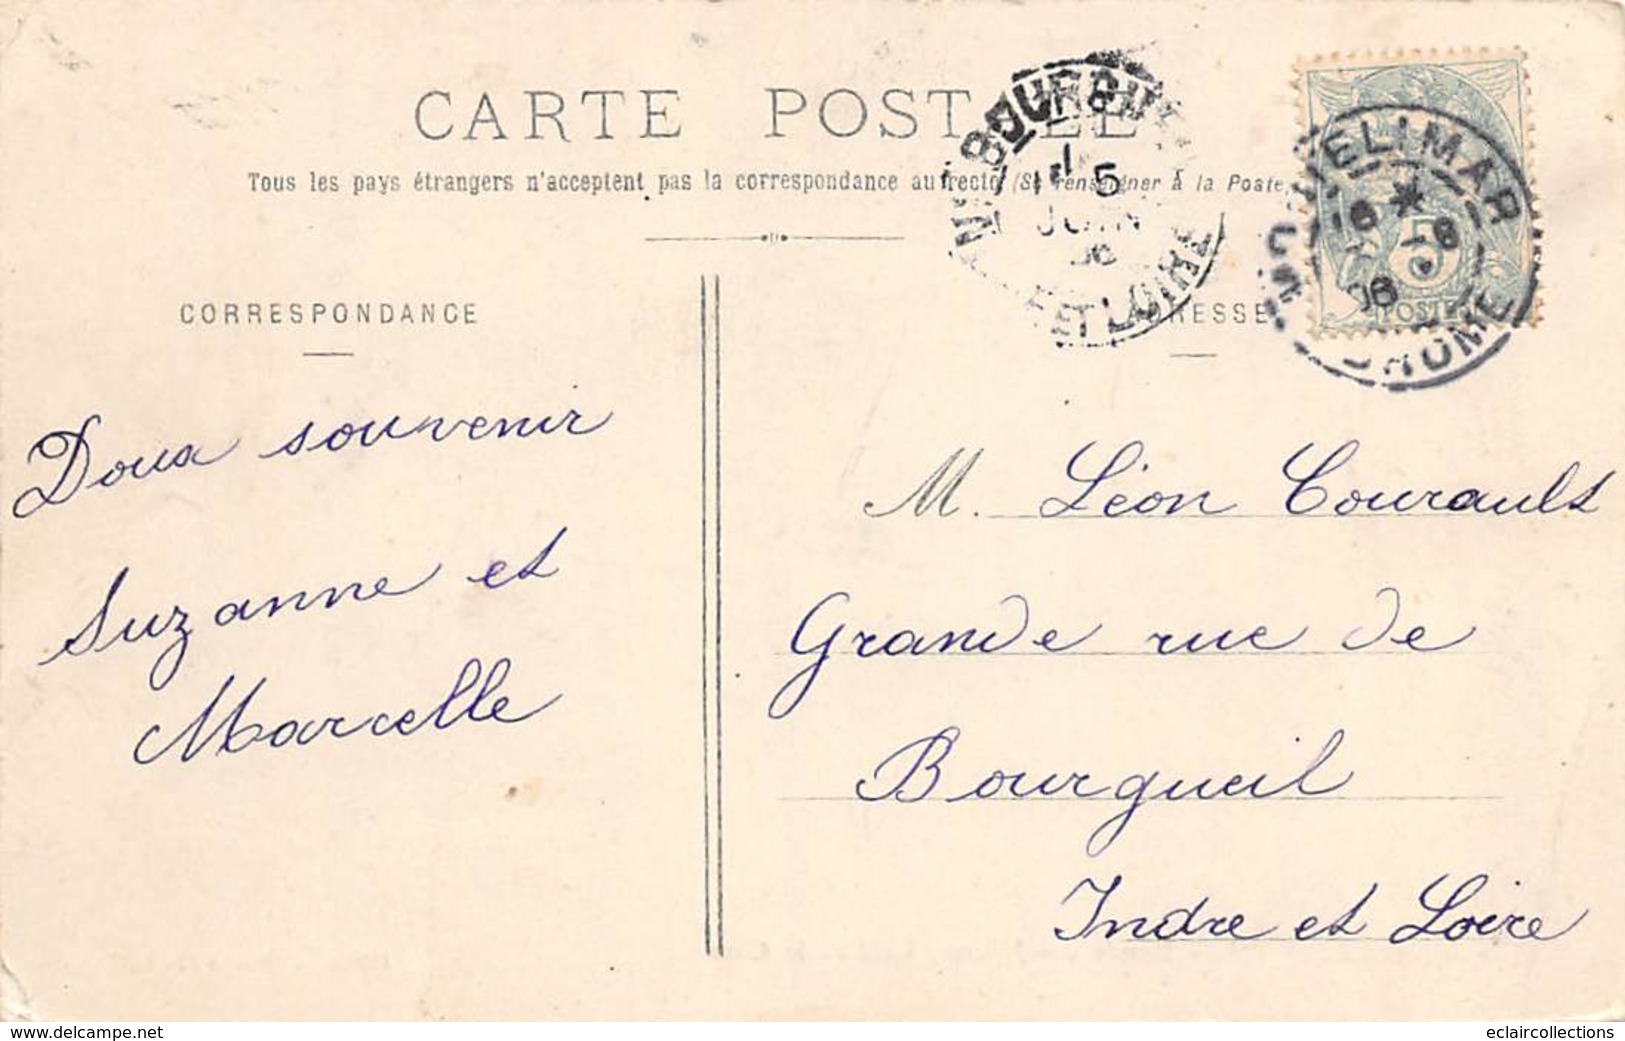 CARTE POSTALE
Tous les pays étrangers n'acceptent pas la correspondance au recto (Se renseigner à la Poste)
CORRESPONDANCE
ADRESSE
MONTELIMAR
DROME
5
POSTE
5
JUIN
06
ET LOIRE
Doux souvenir
Suzanne et
Marcelle
M. Léon Courault
Grande rue de
Bourgueil
Indre et Loire
www.delcampe.net
eclaircollections